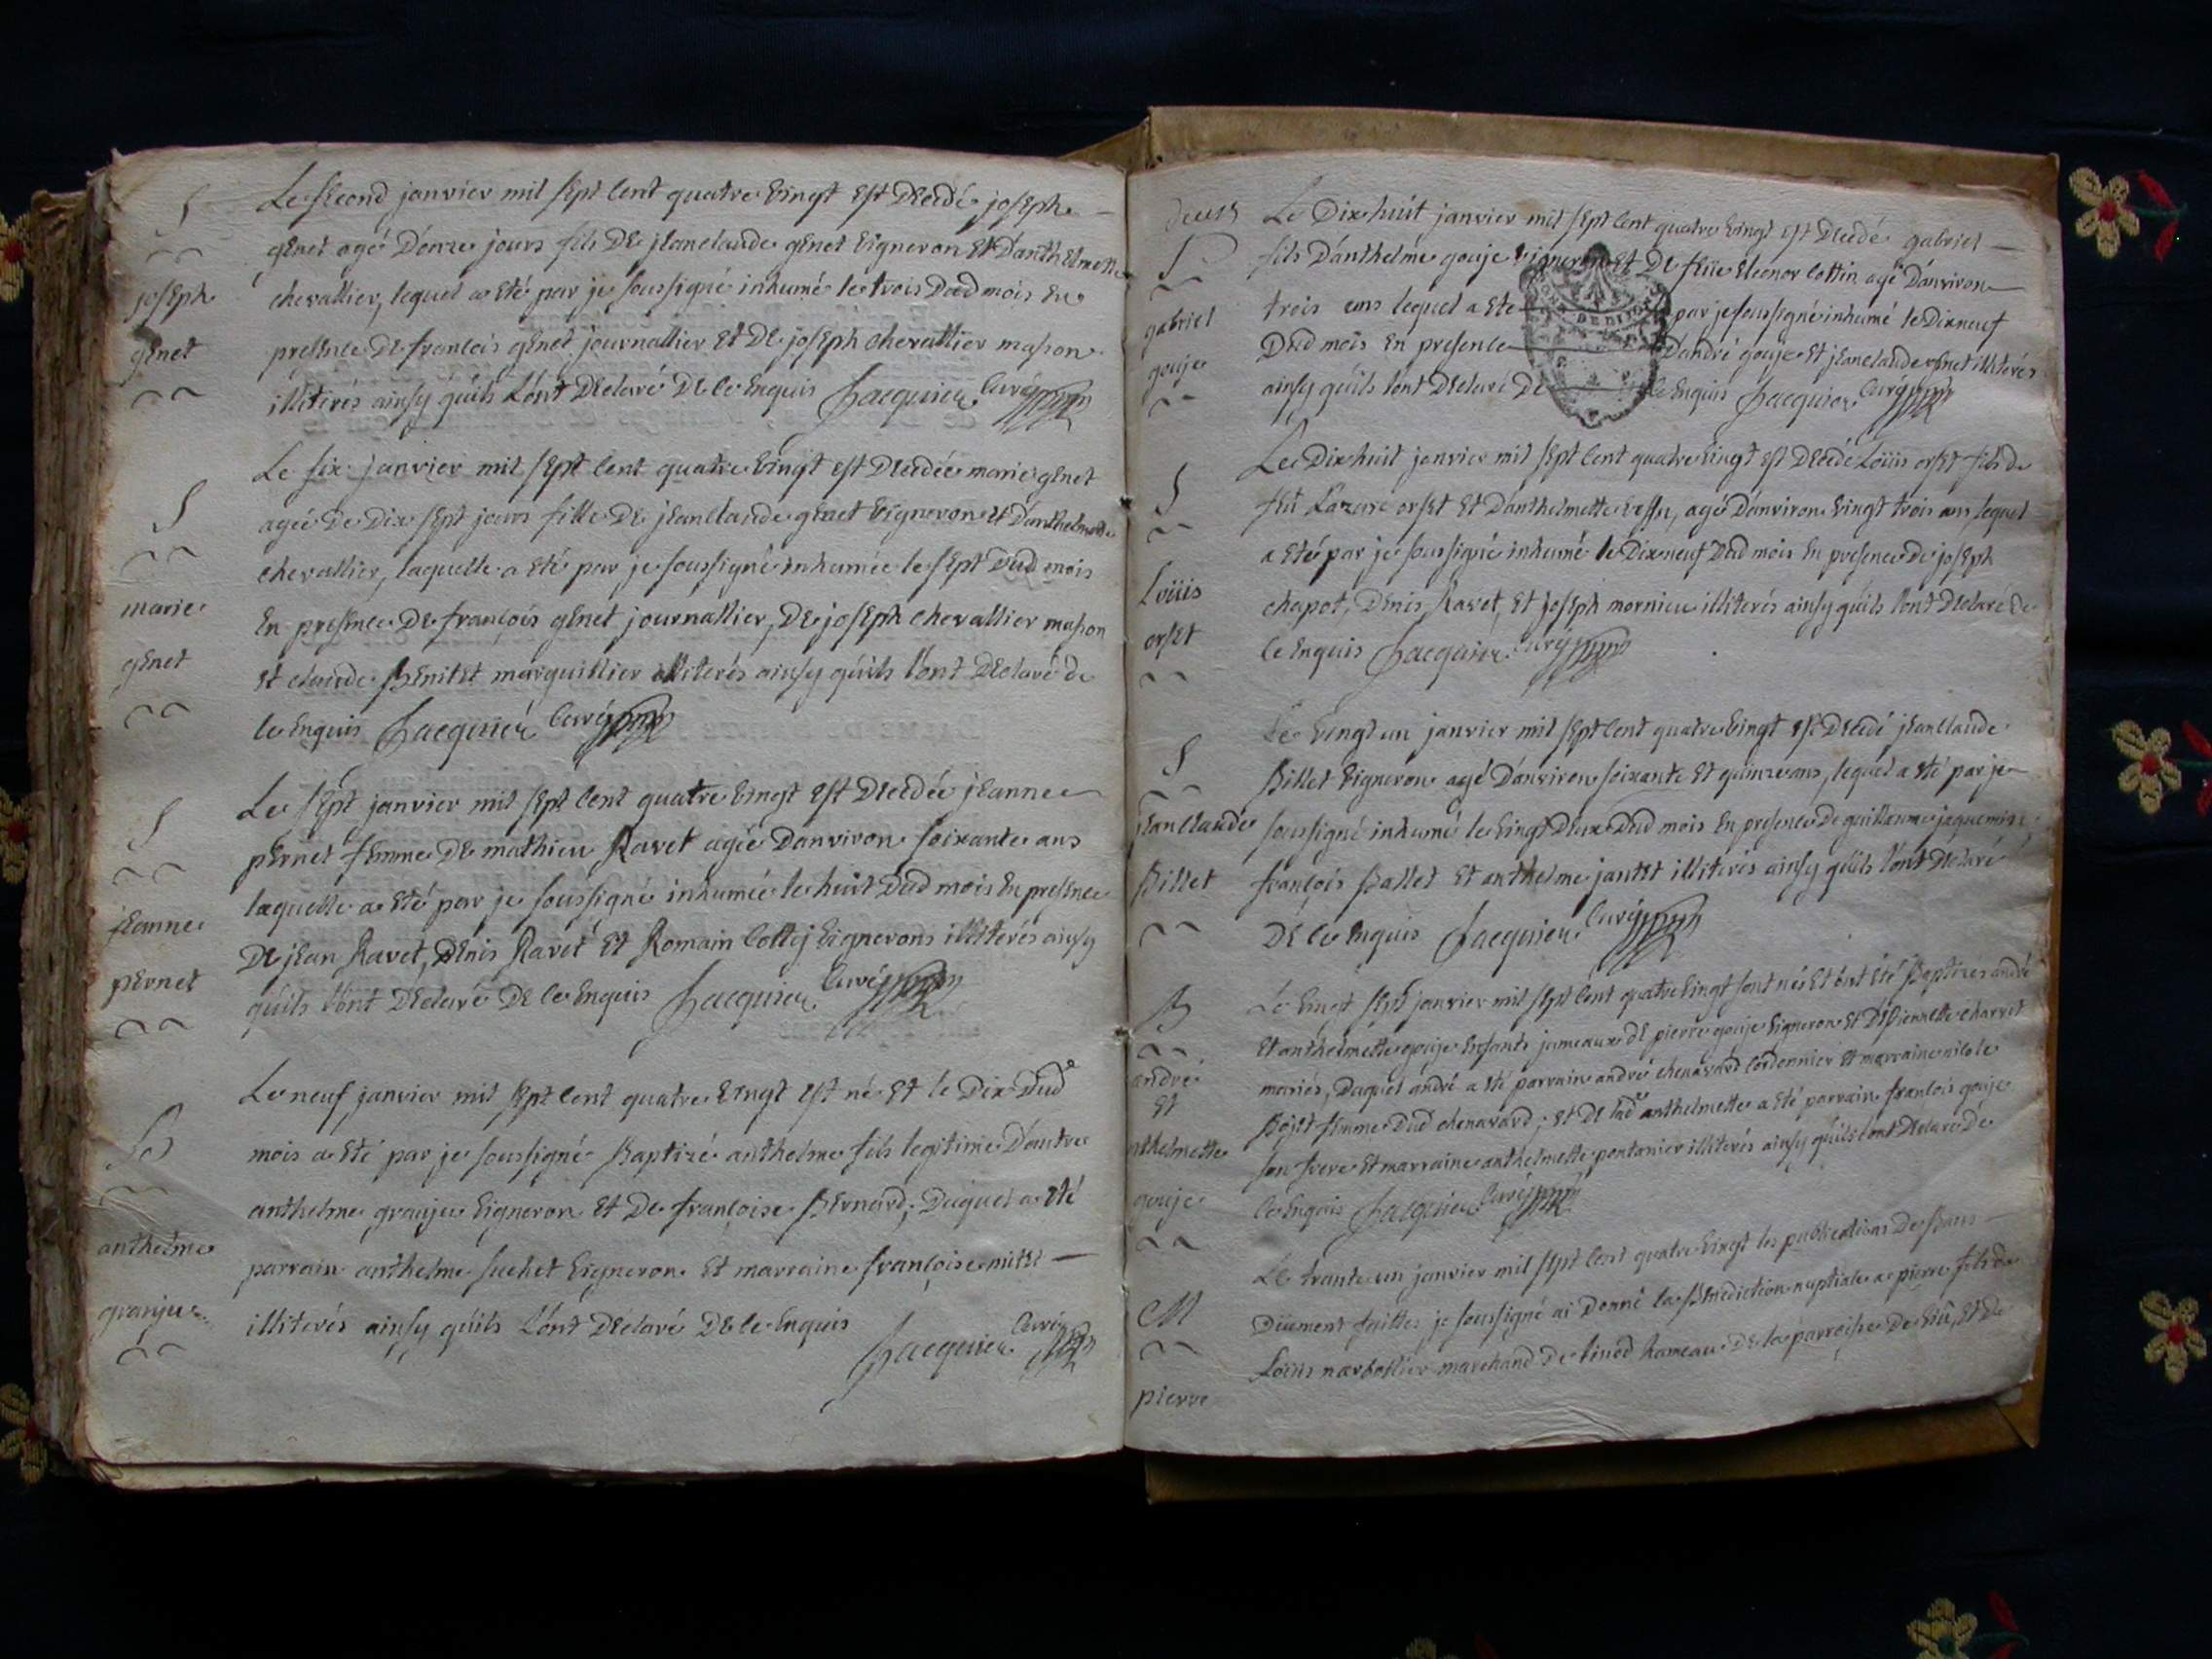 S
joseph
genet
Le second janvier mil sept cent quatre vingt est decedé joseph
genet agé d'onze jours fils de jeanclaude genet vigneron et d'anthelmette
chevallier, lequel a eté par je soussigné inhumé le trois dud mois en
presence de francois genet journallier et de joseph chevallier masson
illiterés ainsy qúils l'ónt declaré de ce enquis Jacquier curé
S
marie
genet
Le six janvier mil sept cent quatre vingt est decedée marie genet
agée de dix sept jours fille de jeanclaude genet vigneron et d'anthelmette
chevallier, laquelle a eté par je soussigné inhumée le sept dud mois
en presence de françois genet journallier, de joseph chevallier masson
et claude Benitet marguillier illiterés ainsy qúils l'ont declaré de
ce enquis Jacquier curé
S
jeanne
pernet
Le sept janvier mil sept cent quatre vingt est decedée jeanne
pernet femme de mathieu Ravet agée d'anviron soixante ans
laquelle a eté par je soussigné inhumée le huit dud mois en presence
de jean Ravet, denis Ravet et Romain cottij vignerons illiterés ainsy
qúils l'ónt declaré de ce enquis Jacquier curé
B
anthelme
granju
Le neuf janvier mil sept cent quatre vingt est né et le dix dud
mois a eté par je soussigné Baptizé anthelme fils legitime d'autre
anthelme granju vigneron et de françoise Bernard; duquel a eté
parrain anthelme suchet vigneron et marraine françoise
illiterés ainsy qúils l'ónt declaré de ce enquis
Jacquier curé
deux
S
gabriel
gouje
Le dix huit janvier mil sept cent quatre vingt est decedé gabriel
fils d'anthelme gouje vigneron et de feüe eleonor cottin agé d'anviron
trois ans lequel a ete par je soussigné inhumé le dixneuf
dud mois en presence d'andré gouje et jeanclaude genet illiterés
ainsy qúils l'ont declaré de ce enquis Jacquier curé
S
Loüis
orset
Le dix huit janvier mil sept cent quatre vingt est decedé Loüis orset fils de
feü Lazare orset et d'anthelmette, agé d'anviron vingt trois ans lequel
a eté par je soussigné inhumé le dixneuf dud mois en presence de joseph
chapot, denis Ravet, et joseph mornieu illiterés ainsy qúils l'ont declaré de
ce enquis Jacquier curé
S
jeanclaude
Billet
Le vingt un janvier mil sept cent quatre vingt est decedé jeanclaude
Billet vigneron agé d'anviron soixante et quinze ans, lequel a eté par je
soussigné inhumé le vingt deux dud mois en presence de guillaume jaquemin,
françois Ballet et anthelme jantet illiterés ainsy qúils l'ont declaré
de ce enquis Jacquier curé
B
andré
et
nthelmette
gouje
Le vingt sept janvier mil sept cent quatre vingt sont nés et ont été Baptizés andré
et anthelmette gouje enfants jumeaux de pierre gouje vigneron et d'étiennette charvet
mariés, duquel andré a eté parrain andré chenavard cordonnier et marraine nicole
Bojet femme dud chenavard; et de lad anthelmette a eté parrain francois gouje
son frere et marraine anthelmette pontanier illiterés ainsy qúils l'ont declaré de
ce enquis Jacquier curé
M
pierre
Le trante un janvier mil sept cent quatre vingt les publications de Bans
düement faittes, je soussigné ai donné la Benediction nuptiale a pierre fils de
Loüis narbollier marchand de hameau de la parroisse de et de